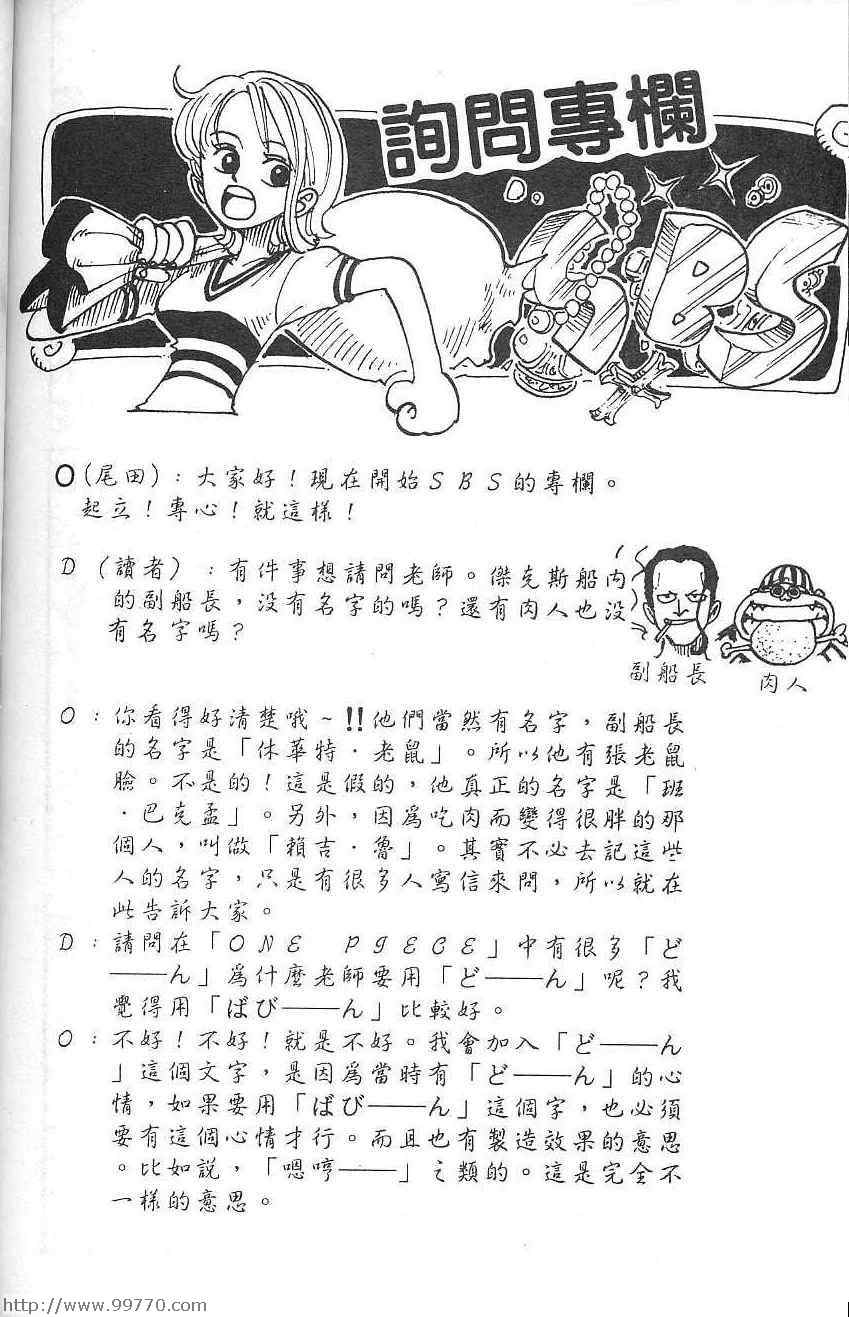 詢問專欄
SBS
O(尾田):大家好!現在開始SBS的專欄。
起立!專心!就這樣!
D(讀者):有件事想請問老師。傑克斯船內
的副船長,沒有名字的嗎?還有肉人也沒
有名字嗎?
副船長
肉人
O:你看得好清楚哦~!!他們當然有名字,副船長
的名字是「休華特·老鼠」。所以他有張老鼠
臉。不是的!這是假的,他真正的名字是「班
·巴克孟」。另外,因為吃肉而變得很胖的那
個人,叫做「賴吉·魯」。其實不必去記這些
人的名字,只是有很多人寫信來問,所以就在
此告訴大家。
D:請問在「ONE PIECE」中有很多「ど
——ん」為什麼老師要用「ど——ん」呢?我
覺得用「ばび——ん」比較好。
O:不好!不好!就是不好。我會加入「ど——ん
」這個文字,是因為當時有「ど——ん」的心
情,如果要用「ばび——ん」這個字,也必須
要有這個心情才行。而且也有製造效果的意思
。比如說,「嗯哼——」之類的。這是完全不
一樣的意思。
http://www.99770.com